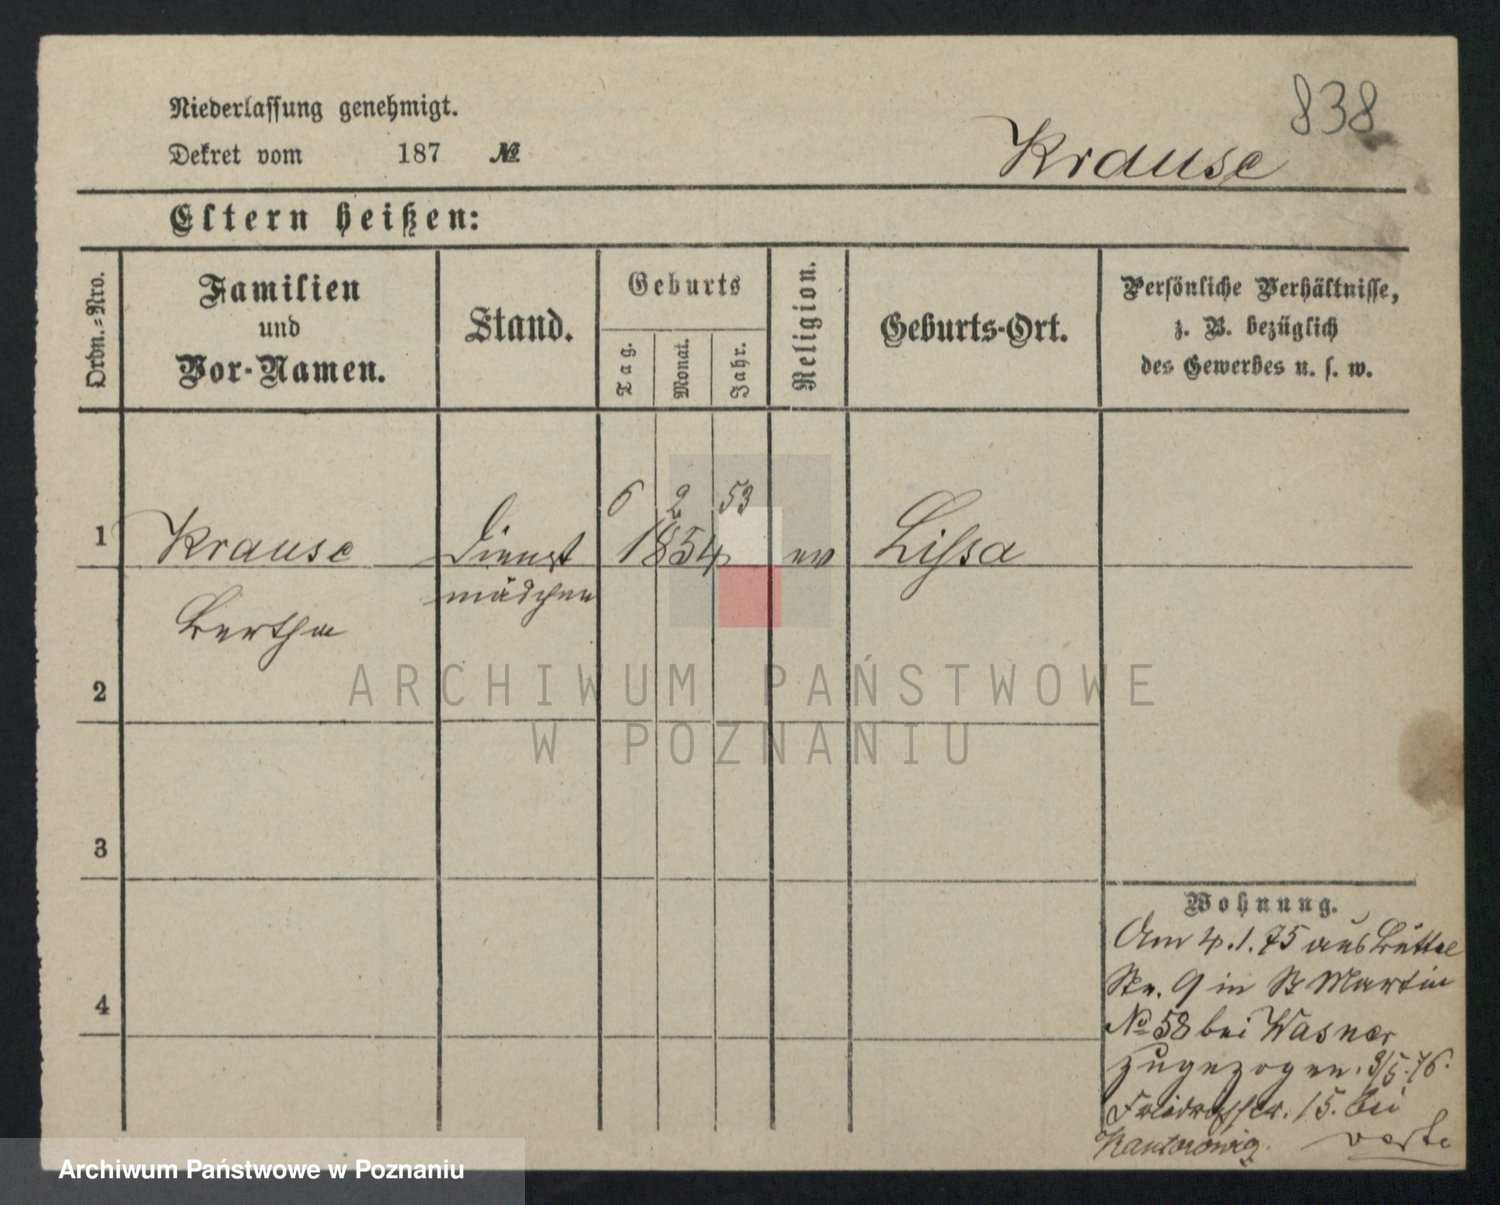 Niederlassung genehmigt.
838
Dekret vom 187 №
Krause
Eltern heißen:
Ordn.=Nro.
Familien
und
Vor-Namen.
Stand.
Geburts
Tag.
Monat.
Jahr.
Religion.
Geburts-Ort.
Persönliche Verhältnisse,
z. B. bezüglich
des Gewerbes u. s. w.
6 2 53
1 Krause Dienst 1854 ev Lissa
mädchen
Bertha
2
3
4
Wohnung.
Am 4.1.75 aus Büttel
Str. 9 in St Martin
No 58 bei Wasner
zugezogen. 3/5.76.
Friedrichstr. 15. bei
Kantorowicz. verte
ARCHIWUM PAŃSTWOWE
W POZNANIU
Archiwum Państwowe w Poznaniu